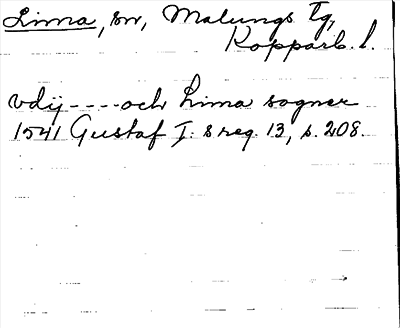 Lima, sn, Malungs tg,
Kopparb. l.
vdij ---- och Lima sogner
1541 Gustaf I: s reg. 13, s. 208.